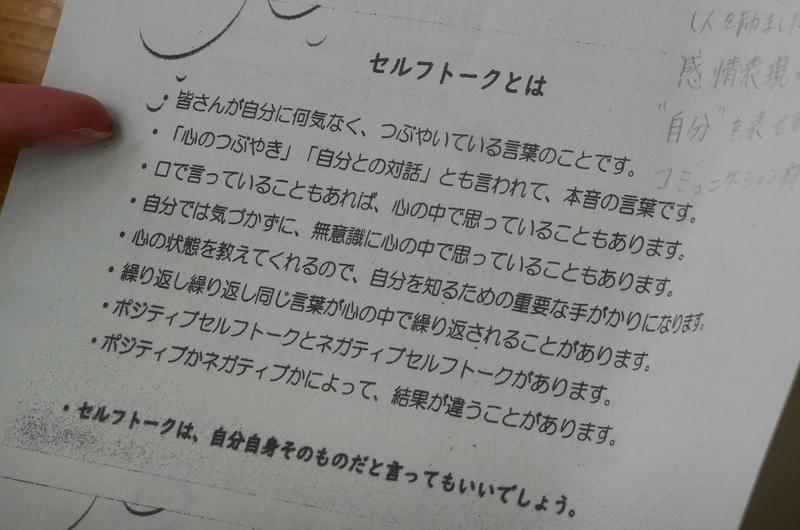 セルフトークとは
・皆さんが自分に何気なく、つぶやいている言葉のことです。
・「心のつぶやき」「自分との対話」とも言われて、本音の言葉です。
・口で言っていることもあれば、心の中で思っていることもあります。
・自分では気づかずに、無意識に心の中で思っていることもあります。
・心の状態を教えてくれるので、自分を知るための重要な手がかりになります。
・繰り返し繰り返し同じ言葉が心の中で繰り返されることがあります。
・ポジティブセルフトークとネガティブセルフトークがあります。
・ポジティブかネガティブかによって、結果が違うことがあります。
・セルフトークは、自分自身そのものだと言ってもいいでしょう。
(人を励ました
感情表現
"自分"を
コミュニケーション